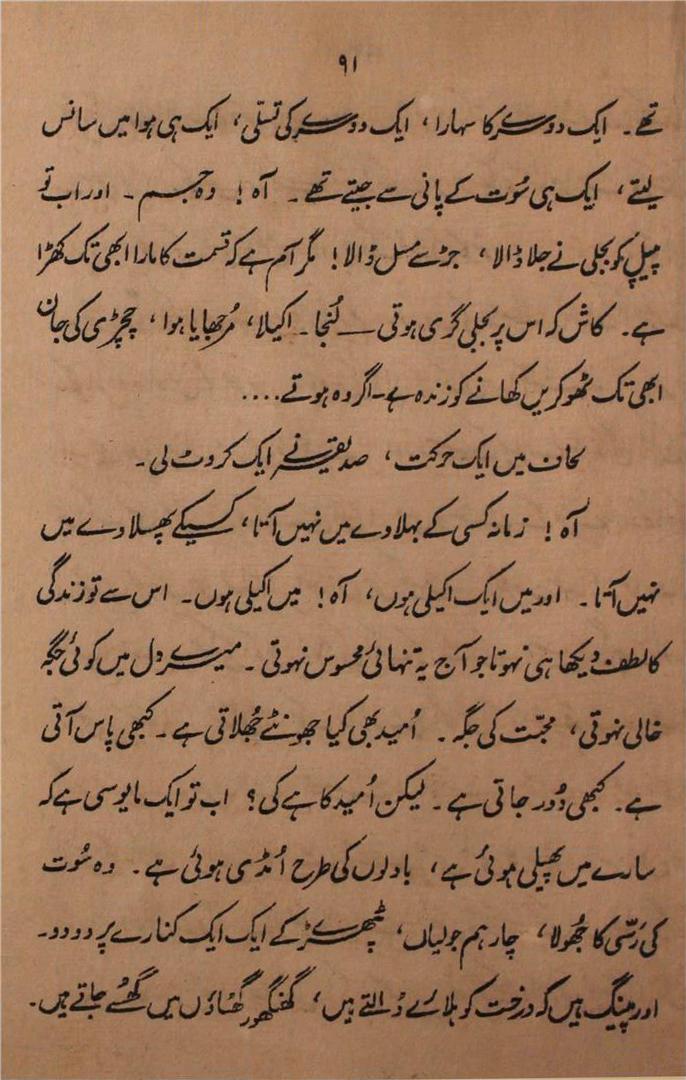 ۹۱
تھے۔ ایک دوسرے کا سہارا، ایک دوسرے کی تسلّی، ایک ہی ہوا میں سانس
لیتے، ایک ہی سُوت کے پانی سے جیتے تھے۔ آہ! وہ جسم۔ اور اب تو
پیپل کو بجلی نے جلا ڈالا، جڑ سے مسل ڈالا! مگر آم ہے کہ قسمت کا مارا ابھی تک کھڑا
ہے۔ کاش کہ اس پر بجلی گری ہوتی — لُنجا۔ اکیلا، مُرجھایا ہوا، چچڑی کی جان
ابھی تک ٹھوکریں کھانے کو زندہ ہے۔ اگر وہ ہوتے....
لحاف میں ایک حرکت، صدیقہ نے ایک کروٹ لی۔
آہ! زمانہ کسی کے بہلاوے میں نہیں آتا، کسی کے پھسلاوے میں
نہیں آتا۔ اور میں ایک اکیلی ہوں، آہ! میں اکیلی ہوں۔ اس سے تو زندگی
کا لطف دیکھا ہی نہوتا جو آج یہ تنہائی محسوس نہوتی۔ میرے دل میں کوئی جگہ
خالی نہوتی، محبّت کی جگہ۔ اُمید بھی کیا جھونٹے جُھلاتی ہے۔ کبھی پاس آتی
ہے۔ کبھی دُور جاتی ہے۔ لیکن اُمید کاہے کی؟ اب تو ایک مایوسی ہے کہ
سارے میں پھیلی ہوئی ہے، بادلوں کی طرح اُمڈی ہوئی ہے۔ وہ سُوت
کی رَسّی کا جُھولا، چار ہم جولیاں، پٹھرے کے ایک ایک کنارے پر دو دو۔
اور پینگ ہیں کہ درخت کو ہلائے ڈالتے ہیں، گھنگھور گھٹاؤں میں گھُسے جاتے ہیں۔